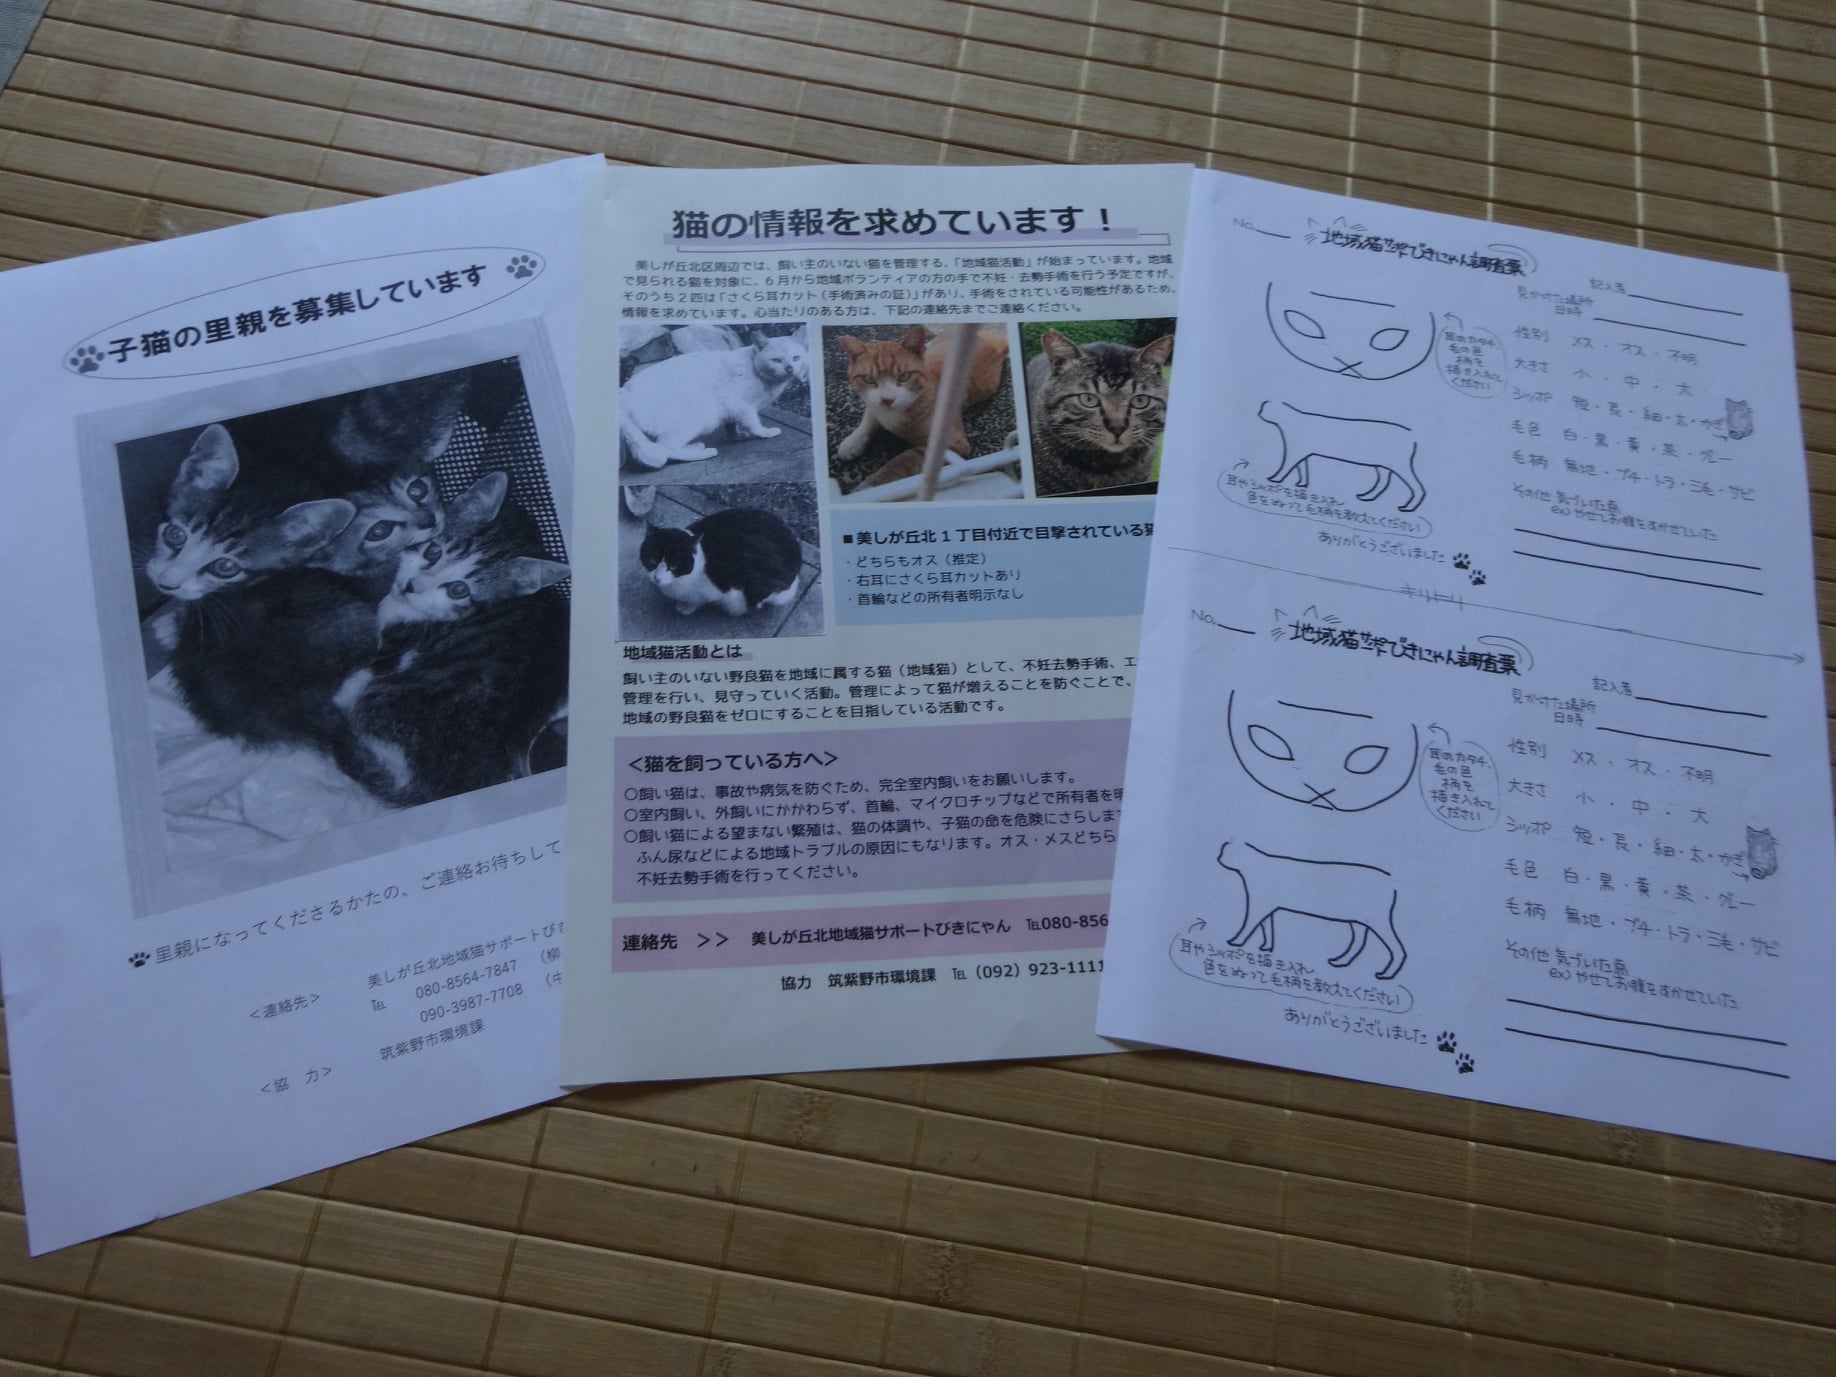 子猫の里親を募集しています
里親になってくださるかたの、ご連絡お待ちして
<連絡先>
美しが丘北地域猫サポートびき
℡ 080-8564-7847 (柳
090-3987-7708
<協 力>
筑紫野市環境課
猫の情報を求めています!
美しが丘北区周辺では、飼い主のいない猫を管理する、「地域猫活動」が始まっています。地域
で見られる猫を対象に、6月から地域ボランティアの方の手で不妊・去勢手術を行う予定ですが、
そのうち2匹は「さくら耳カット(手術済みの証)」があり、手術をされている可能性があるため、
情報を求めています。心当たりのある方は、下記の連絡先までご連絡ください。
■美しが丘北1丁目付近で目撃されている猫
・どちらもオス(推定)
・右耳にさくら耳カットあり
・首輪などの所有者明示なし
地域猫活動とは
飼い主のいない野良猫を地域に属する猫(地域猫)として、不妊去勢手術、エ
管理を行い、見守っていく活動。管理によって猫が増えることを防ぐことで、
地域の野良猫をゼロにすることを目指している活動です。
<猫を飼っている方へ>
○飼い猫は、事故や病気を防ぐため、完全室内飼いをお願いします。
○室内飼い、外飼いにかかわらず、首輪、マイクロチップなどで所有者を明
○飼い猫による望まない繁殖は、猫の体調や、子猫の命を危険にさらしま
ふん尿などによる地域トラブルの原因にもなります。オス・メスどちら
不妊去勢手術を行ってください。
連絡先 >> 美しが丘北地域猫サポートびきにゃん ℡080-856
協力 筑紫野市環境課 ℡(092)923-1111
No.
地域猫サポびきにゃん調査票
記入者
見かけた場所
日時
耳のカタチ、
毛の色
柄を
描き入れて
ください
性別 メス・オス・不明
大きさ 小・中・大
シッポ 短・長・細・太・かぎ
毛色 白・黒・黄・茶・グレー
毛柄 無地・ブチ・トラ・三毛・サビ
その他 気づいた点
ex)やせてお腹をすかせていた
耳やシッポを描き入れ
色をぬって毛柄を教えてください
ありがとうございました
キリトリ
No.
地域猫サポびきにゃん調査票
記入者
見かけた場所
日時
耳のカタチ、
毛の色
柄を
描き入れて
ください
性別 メス・オス・不明
大きさ 小・中・大
シッポ 短・長・細・太・かぎ
毛色 白・黒・黄・茶・グレー
毛柄 無地・ブチ・トラ・三毛・サビ
その他 気づいた点
ex)やせてお腹をすかせていた
耳やシッポを描き入れ
色をぬって毛柄を教えてください
ありがとうございました